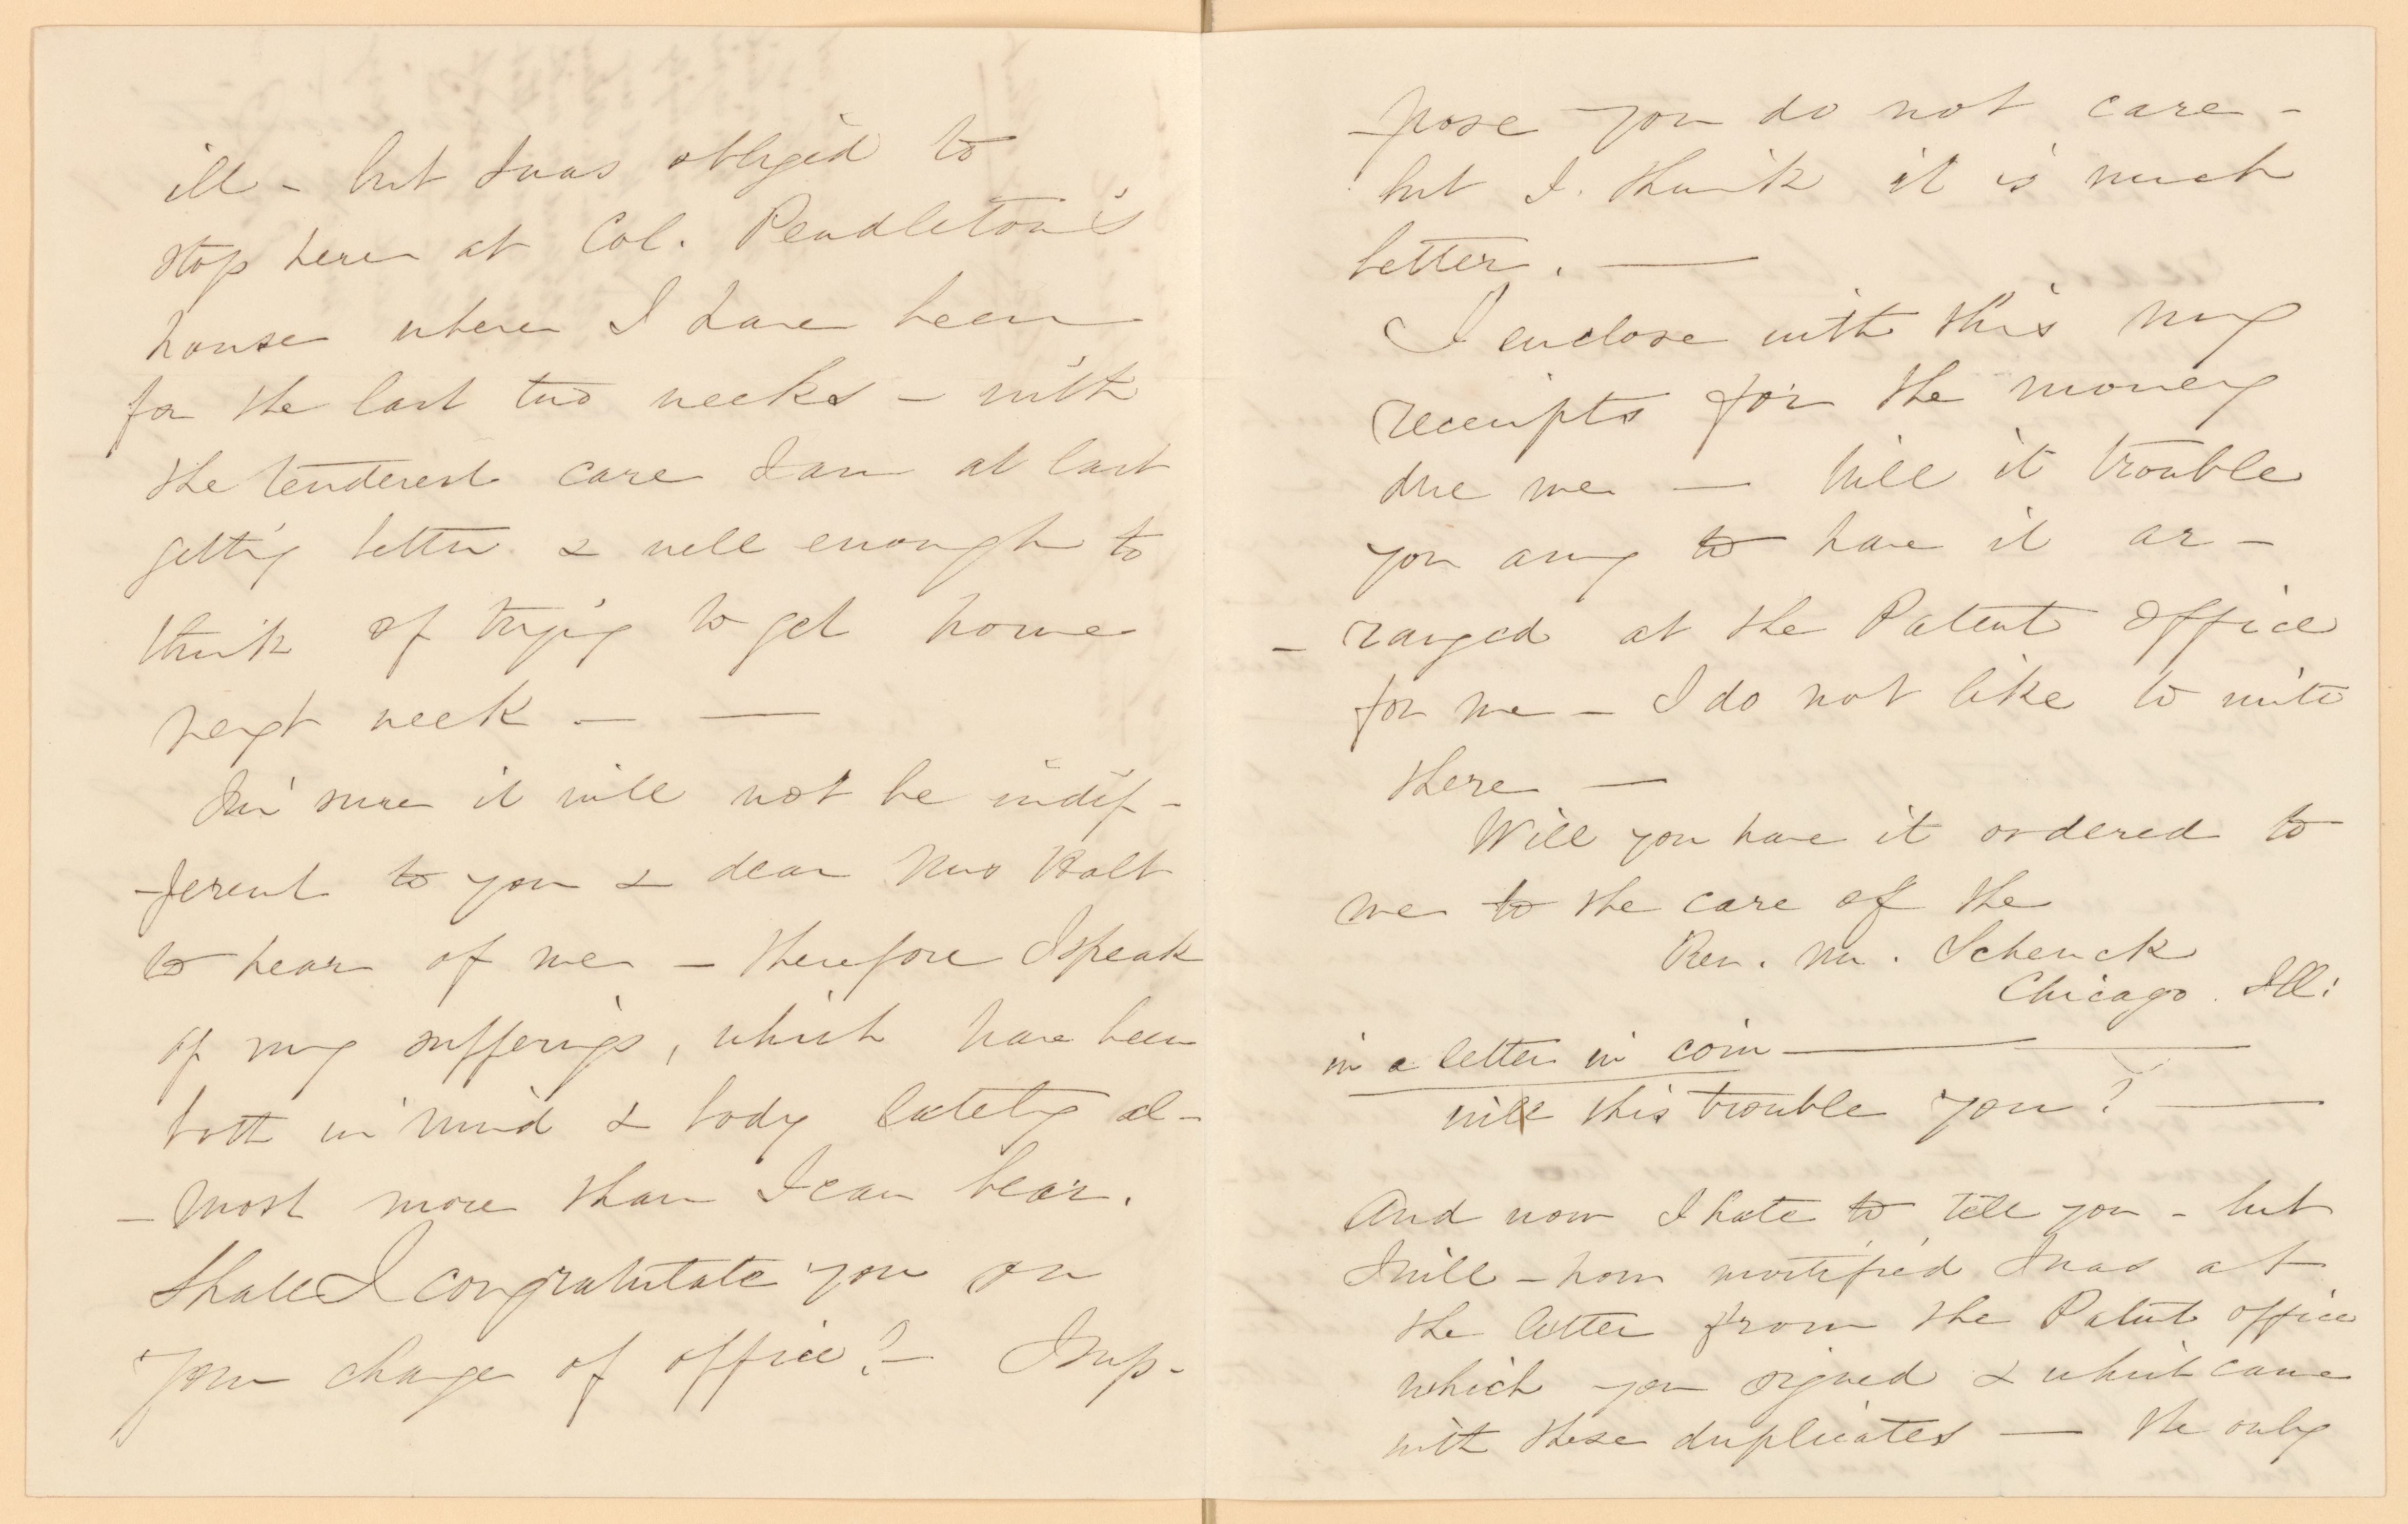 ill - but I was obliged to
stop here at Col. Pendleton's
house where I have been
for the last two weeks - with
the tenderest care I am at last
getting better & well enough to
think of trying to get home
next week - —
I'm sure it will not be indif-
-ferent to you & dear Mrs Holt
to hear of me - therefore I speak
of my sufferings, which have been
both in mind & body lately al-
- most more than I can bear.
Shall I congratulate you on
your change of office? - I sup-
-pose you do not care -
but I think it is much
better. —
I enclose with this my
receipts for the money
due me — will it trouble
you any to have it ar-
- ranged at the Patent Office
for me - I do not like to write
there —
Will you have it ordered to
me to the care of the
Rev. Mr. Schenck
Chicago. Ill:
in a letter in coin —
will this trouble you? —
And now I hate to tell you - but
I will - how mortified I was at
the letter from the Patent office
which you signed & which came
with these duplicates — the only